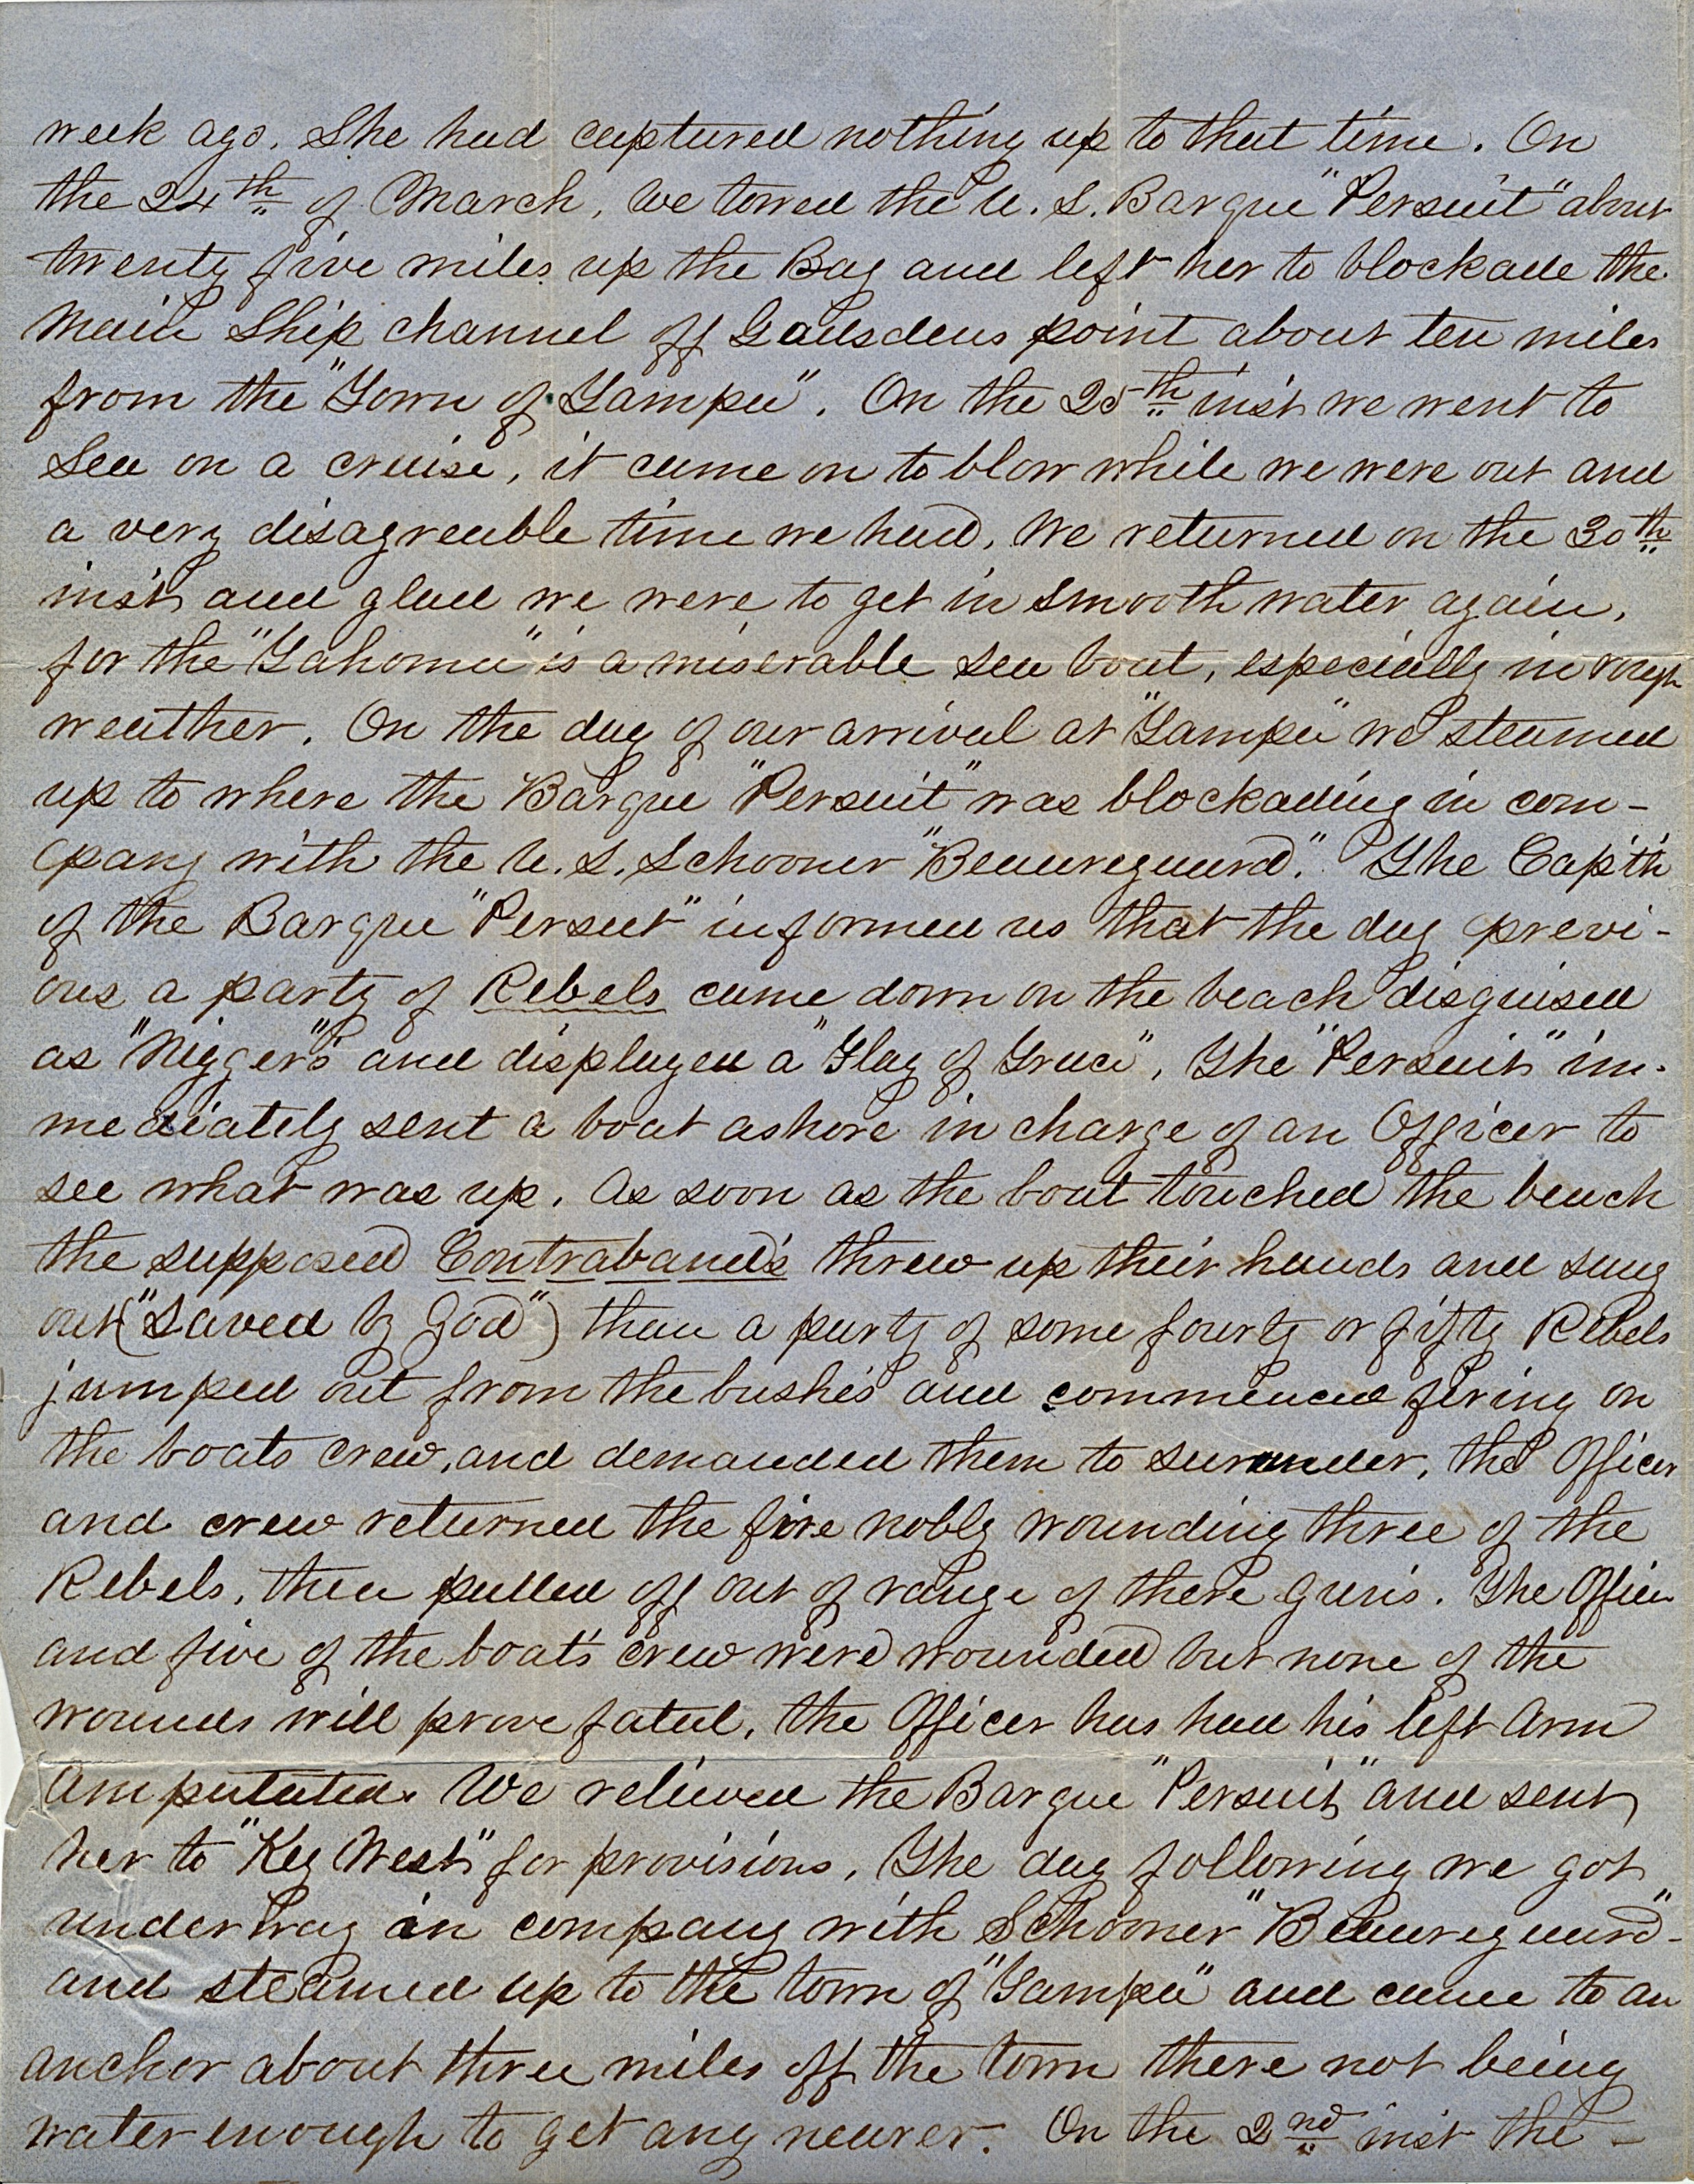 week ago. She had captured nothing up to that time. On
the 24th of March, we towed the U. S. Barque "Persuit" about
twenty five miles up the Bay and left her to blockade the
Main Ship channel off Gadsdens point about ten miles
from the "Town of Tampa". On the 25th inst we went to
Sea on a cruise, it came on to blow while we were out and
a very disagreeable time we had, We returned on the 30th
inst and glad we were to get in smooth water again,
for the "Tahoma" is a miserable sea boat, especially in rough
weather. On the day of our arrival at "Tampa" we steamed
up to where the Barque "Persuit" was blockading in com-
pany with the U. S. Schooner "Beaureguard". The Capt'n
of the Barque "Persuit" informed us that the day previ-
ous a party of Rebels came down on the beach disguised
as "Niggers" and displayed a "Flag of Truce", The "Persuit" im-
mediately sent a boat ashore in charge of an Officer to
see what was up. As soon as the boat touched the beach
the supposed Contraband's threw up their hands and sung
out ("Saved by God") than a party of some fourty or fifty Rebels
jumped out from the bushes and commenced fireing on
the boats crew, and demanded them to surrunder, the Officer
and crew returned the fire nobly wounding three of the
Rebels, then pulled off out of range of there guns. The Officer
and five of the boat's crew were wounded but none of the
wounds will prove fatal, the Officer has had his left Arm
Amputated. We relieved the Barque "Persuit" and sent
her to "Key West" for provisions, The day following we got
underway in company with Schooner "Beaureguard" -
and steamed up to the town of "Tampa" and came to an
anchor about three miles off the town there not being
water enough to get any nearer. On the 2nd inst the -